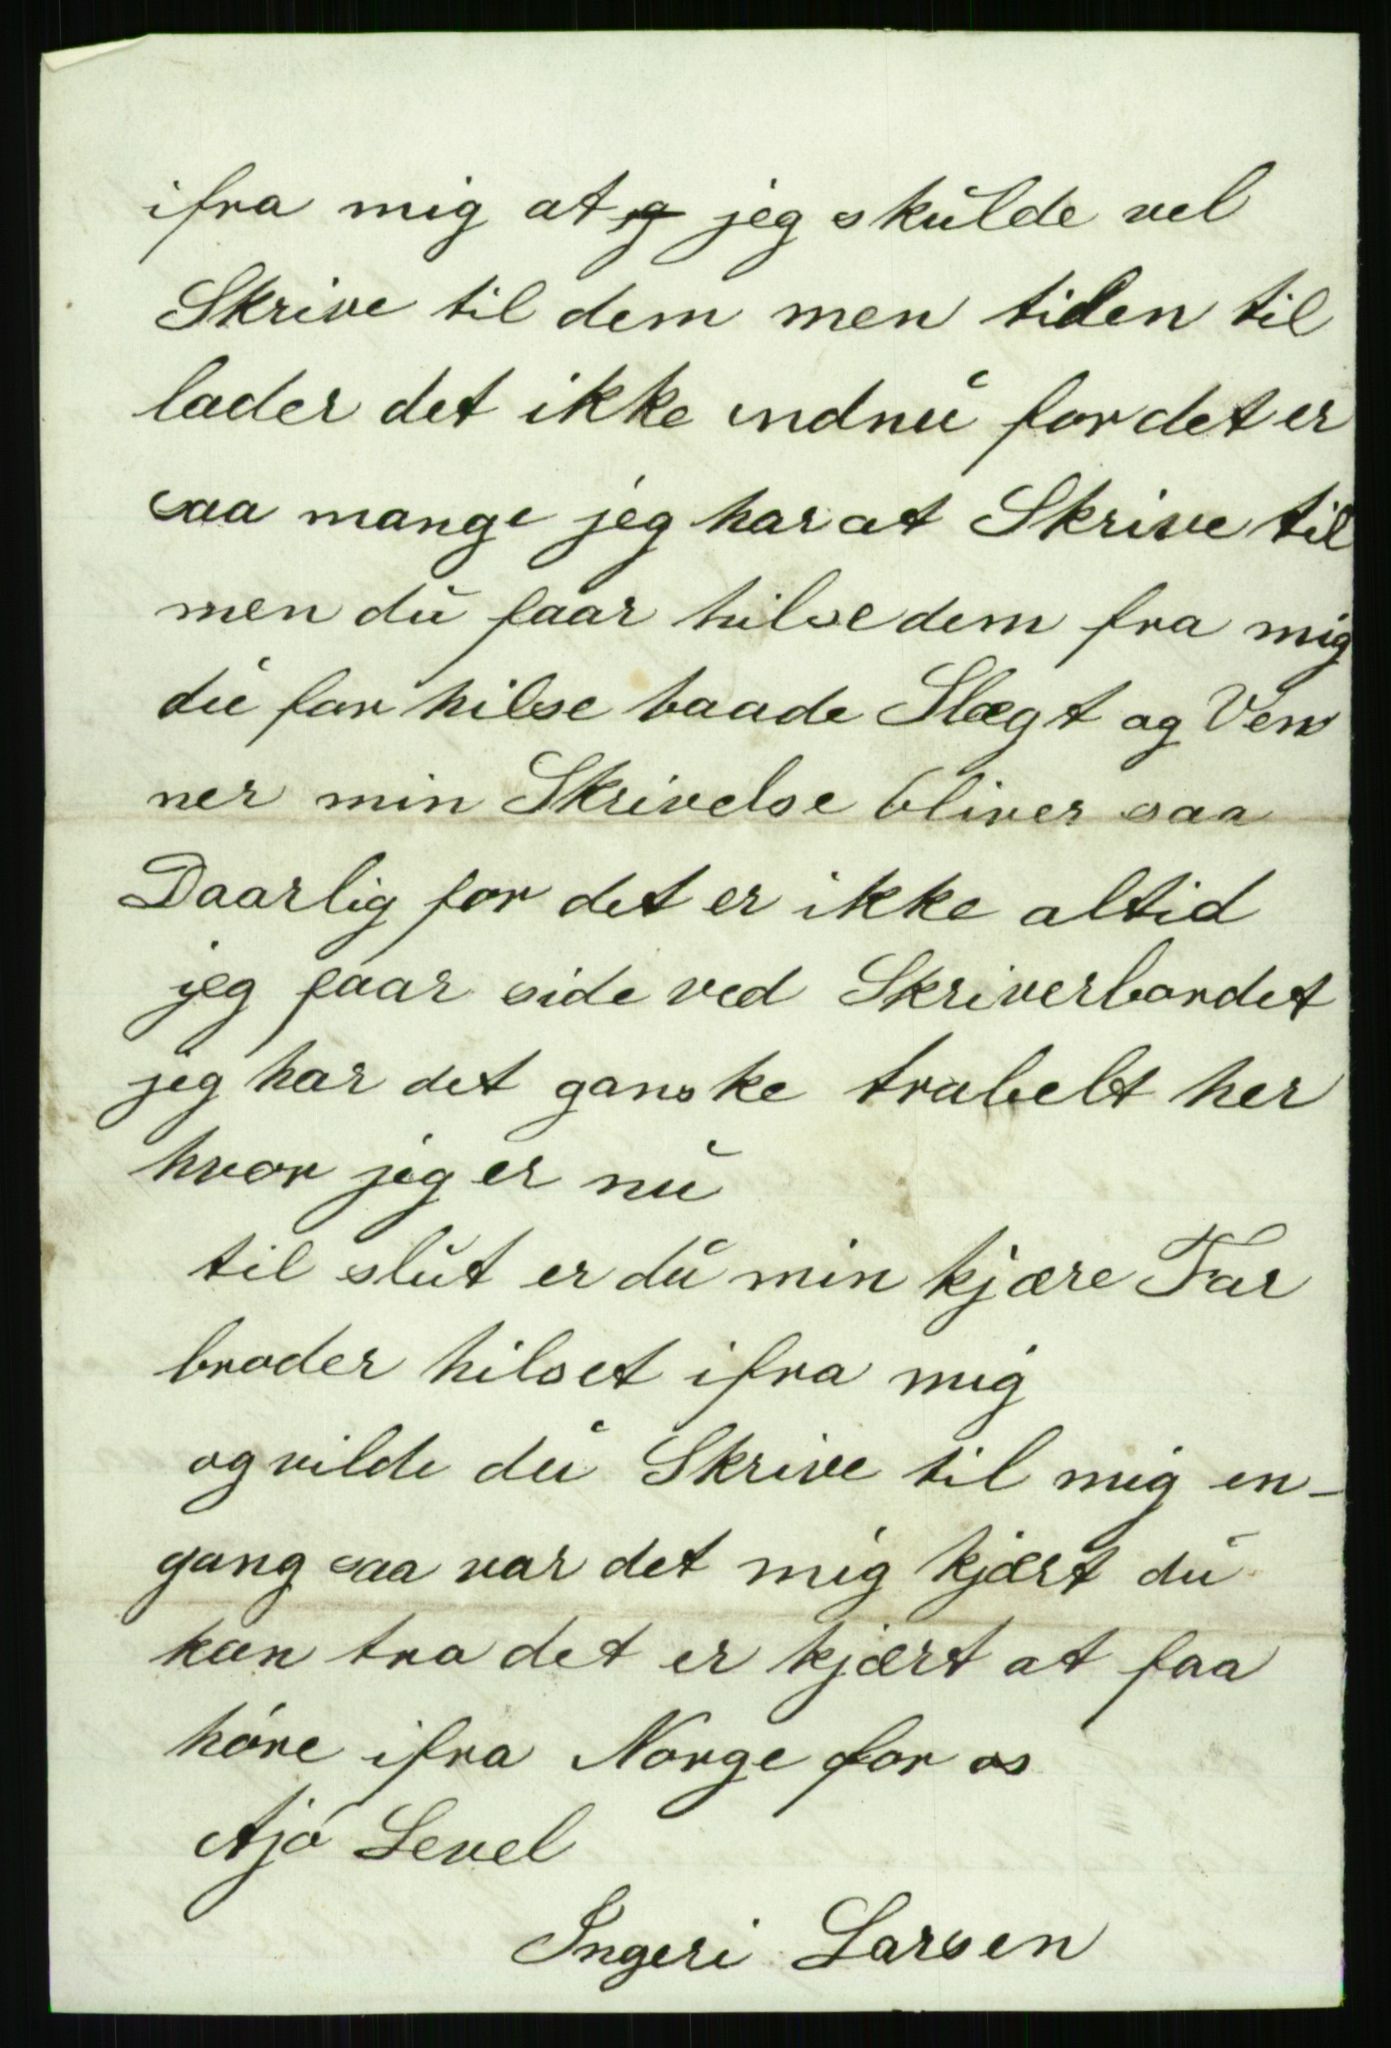 ifra mig at g jeg skulde vel
Skrive til dem men tiden til
lader det ikke endnu for det er
saa mange jeg har at Skrive til
men du faar hilse dem fra mig
du for hilse baade Slægt og Ven
ner min Skrivelse bliver saa
Daarlig for det er ikke altid
jeg faar side ved Skriverbordet
jeg har det ganske trabelt her
hvor jeg er nu
til slut er du min kjære Far
broder hilset ifra mig
og vilde du Skrive til mig en-
gang saa var det mig kjært du
kan tro det er kjært at faa
høre ifra Norge for os
Ajø Level
Ingeri Larsen